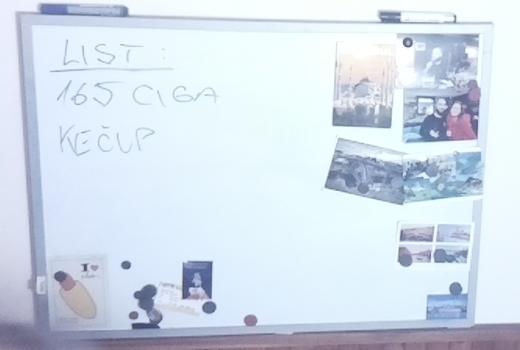 LIST:
165 CIGA
KEČUP
I ♥